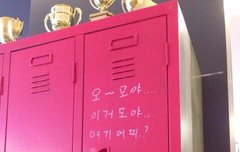 오-모야....
이거모야....
여기어띠..?